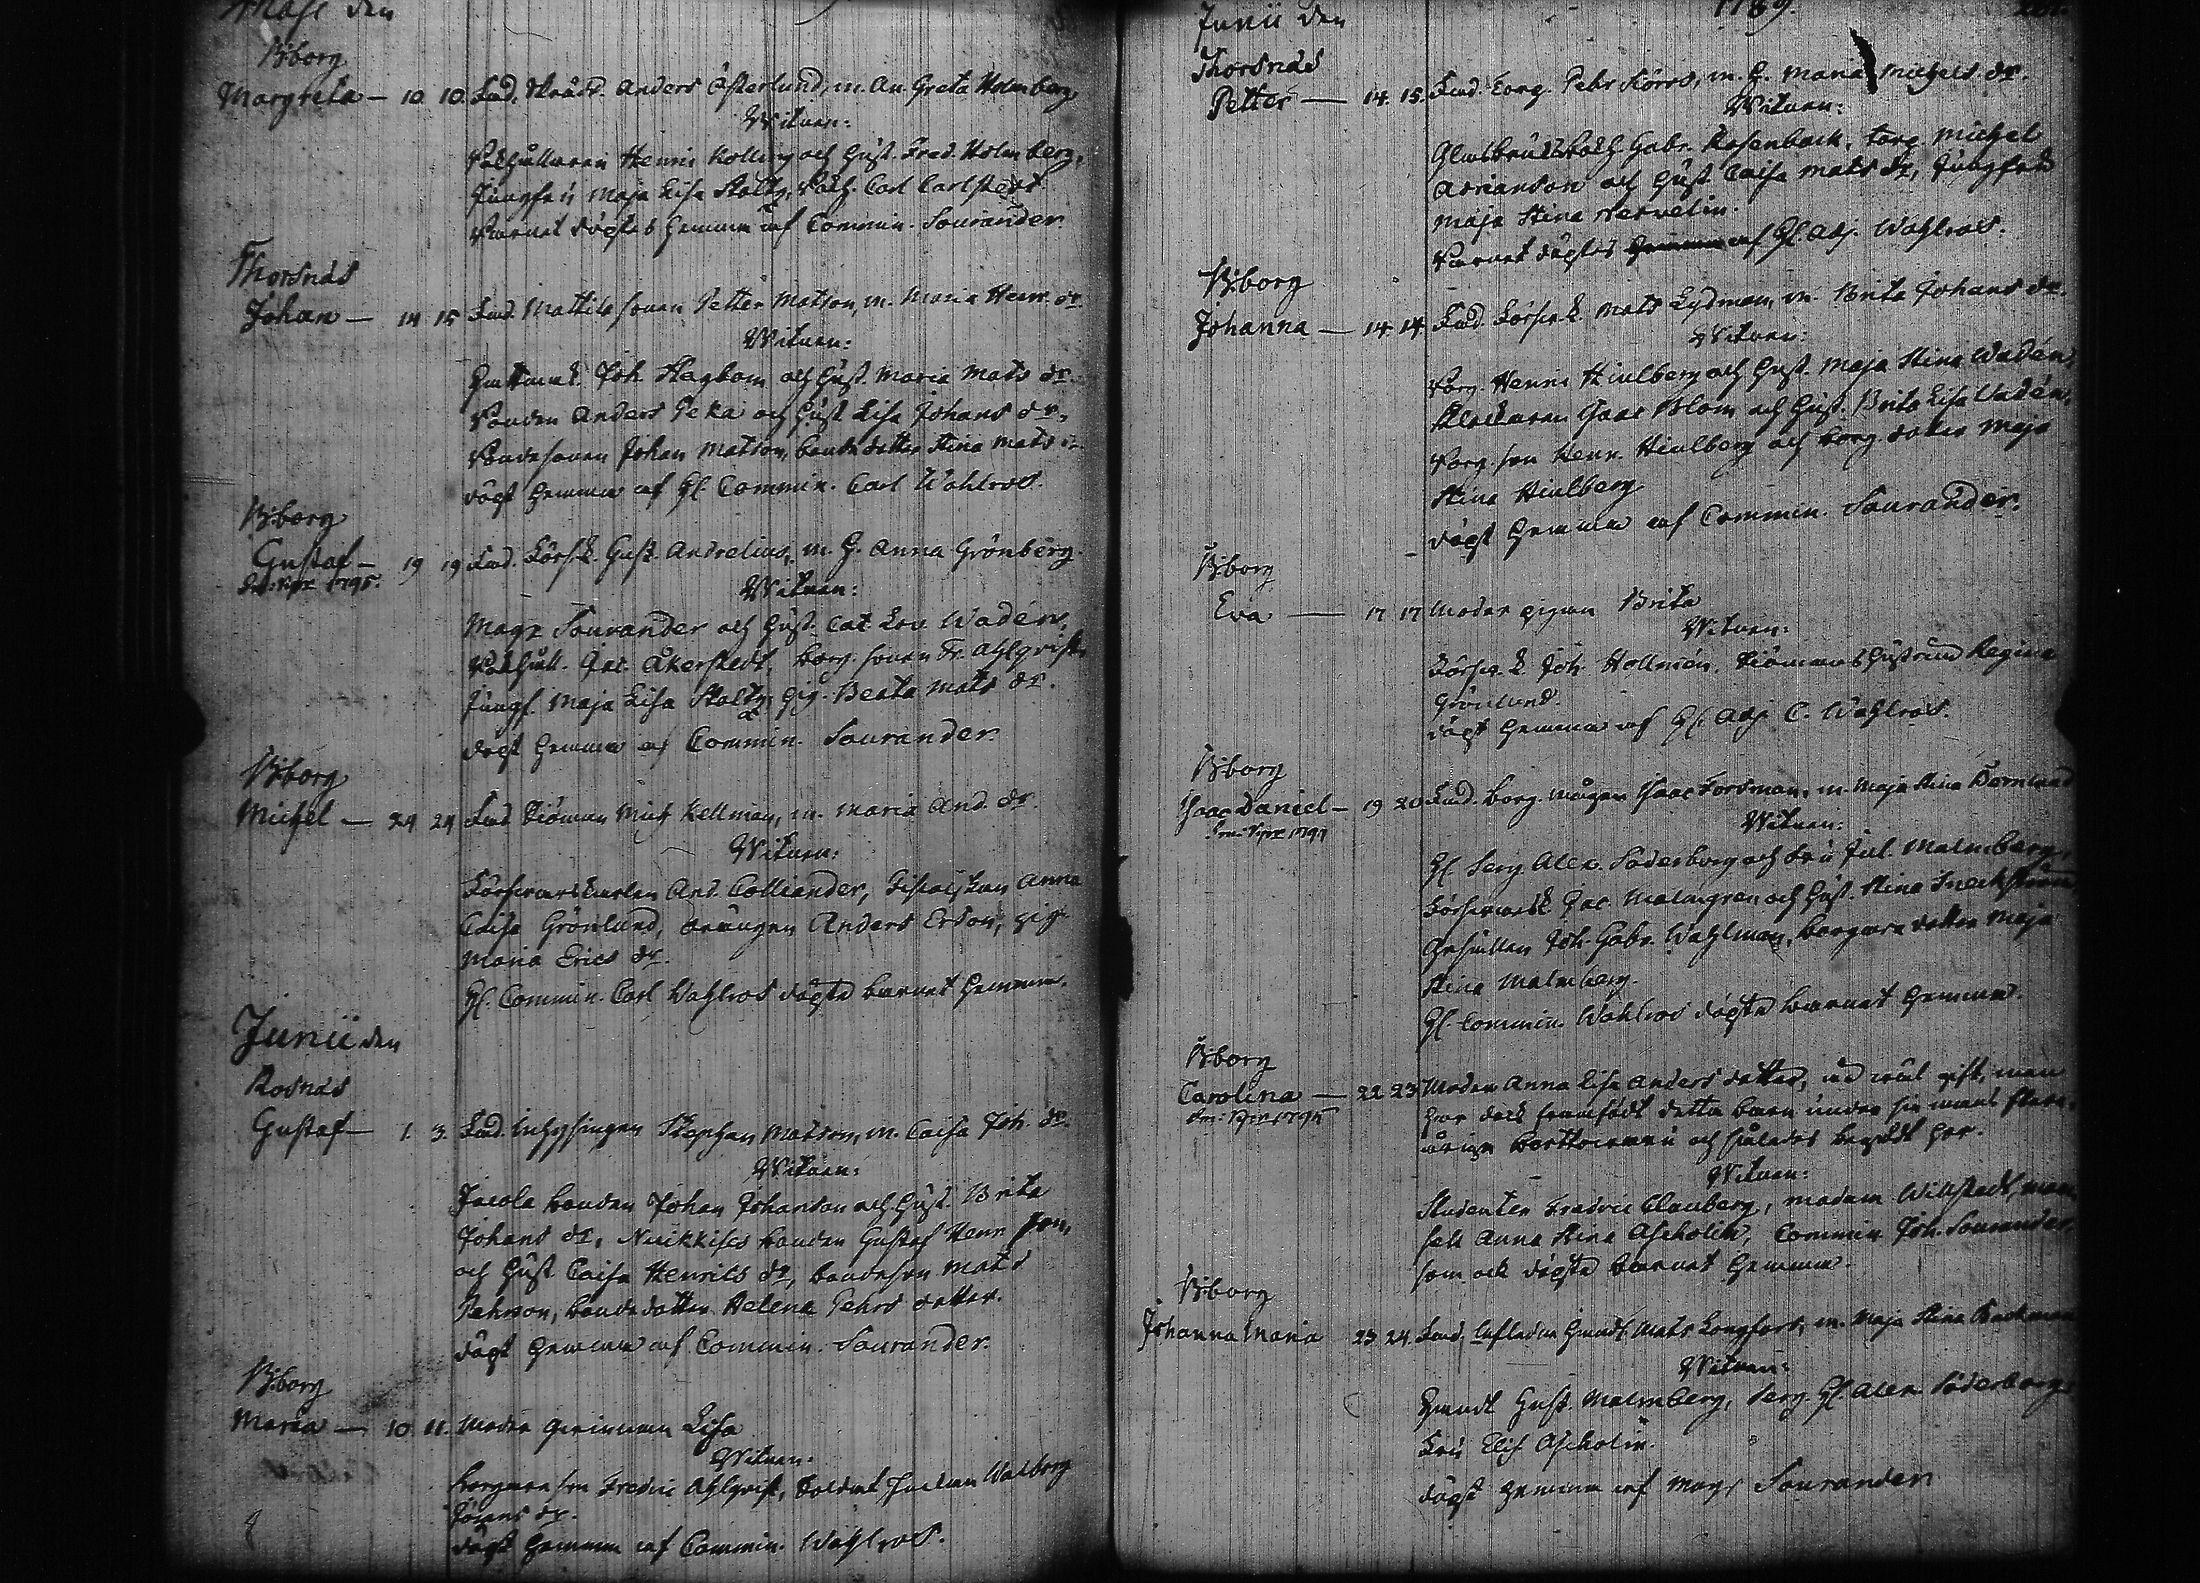 Maji den
B:borg
Margreta — 10 10. Fad. Skrädd. Anders Österlund, m. An. Greta Holmberg
Witnen:
Henric Kolling och Hust. Fred. Holmberg,
Jungfru Maja Lisa Stoltz, Carl Carlstedt
Barnet döptes hemma af Commin. Sourander.
Thorsnäs
Johan — 14 15 Fad. Mattila sonen Petter Matson, m. Maria Henr. dr.
Witnen:
Joh. Hagbom och Hust. Maria Mats dr.
Bonden Anders Peka och Hust. Lisa Johans dr.,
Bondesonen Johan Matson, bonde dotter Stina Mats dr
döpt hemma af H. Commin. Carl Wahlros.
B:borg
Gustaf — 19 19 Fad. Börs.k. Gust. Andrelius, m. H. Anna Grönberg.
1795.
Witnen:
Mag:r Sourander och Hust. Cat. Lov. Wadén,
Jac. Åkerstedt, borg. sonen Fr. Ahlqvist,
Jungf. Maja Lisa Stoltz, pig. Beata Mats dr.
döpt hemma af Commin. Sourander.
B:borg
Michel — 24 24 Fad. Siöman Mich. Kellman, m. Maria And. dr.
Witnen:
And. Colliander, Anna
Caisa Grönlund, drängen Anders Erson, pig.
Maria Erics dr.
H. Commin. Carl Wahlros döpte barnet hemma.
Junii den
Rosnäs
Gustaf — 1. 3. Fad. Inhysingen Stephan Matsson, m. Caisa Joh. dr.
Witnen:
Jacola bonden Johan Johanson och Hust. Brita
Johans dr., bonden Gustaf Henr. son,
och Hust. Caisa Henrics dr., bondeson Mats
Pehrson, bondedotter Helena Pehrs dotter.
döpt hemma af Commin. Sourander.
B:borg
Maria — 10 11. Moder qvinnan Lisa
Witnen:
borgare son Fredric Ahlqvist, Soldat Walborg
Jörans dr.
döpt hemma af Commin. Wahlros.
Junii den 1789.
Thorsnäs
Petter — 14. 15. Fad. Torp. Pehr Körrö, m. H. Maria Michels dr.
Witnen:
Gabr. Rosenback, torp. Michel
Adrianson och Hust. Caisa Mats dr., Jungfru
Maja Stina Nervelin.
Barnet döptes hemma af H. Adj. Wahlros.
B:borg
Johanna — 14. 14. Fad. Mats Lydman, m. Brita Johans dr.
Witnen:
Borg. Henric Hiulberg och Hust. Maja Stina Wadén,
Klockaren Isaac Blom och Hust. Brita Lisa Wadén,
Borg. son Henr. Hiulberg och borg. dotter Maja
Stina Hiulberg
döpt hemma af Commin. Sourander.
B:borg
Eva — 17 17 Moder pigan Brita
Witnen:
Joh. Hollmén, Siömans Hustrun Regina
Grönlund.
döpt hemma af H. Adj. C. Wahlros.
B:borg
Isaac Daniel — 19 20 Fad. borg. mågen Isaac Forsman, m. Maja Stina Björnlund
Witnen:
H. Serg. Alex. Söderborg och Fru Jul. Malmberg,
Jac. Malmgren och Hust. Stina
Gesällen Joh. Gabr. Wahlman, borgare dotter Maja
Stina Malmberg.
H. Commin. Wahlros döpte barnet hemma.
B:borg
Carolina — 22 23 Moder Anna Lisa Anders dotter, wäl gift, men
har dock framfödt detta barn under sin mans flere
åriga borttowaro och således begådt hor.
Witnen:
Studenten Fredric Clauberg, Madam Willstedt, mam
sell Anna Stina Ascholin, Commin. Joh. Sourander,
som ock döpte barnet hemma.
B:borg
Johanna Maria 23 24. Fad. Mats Longfors, m. Maja Stina Backman
Witnen:
Gust. Malmberg, Serg. H. Alex. Söderborg,
Fru Elis. Ascholin.
döpt hemma af Mag:r Sourander